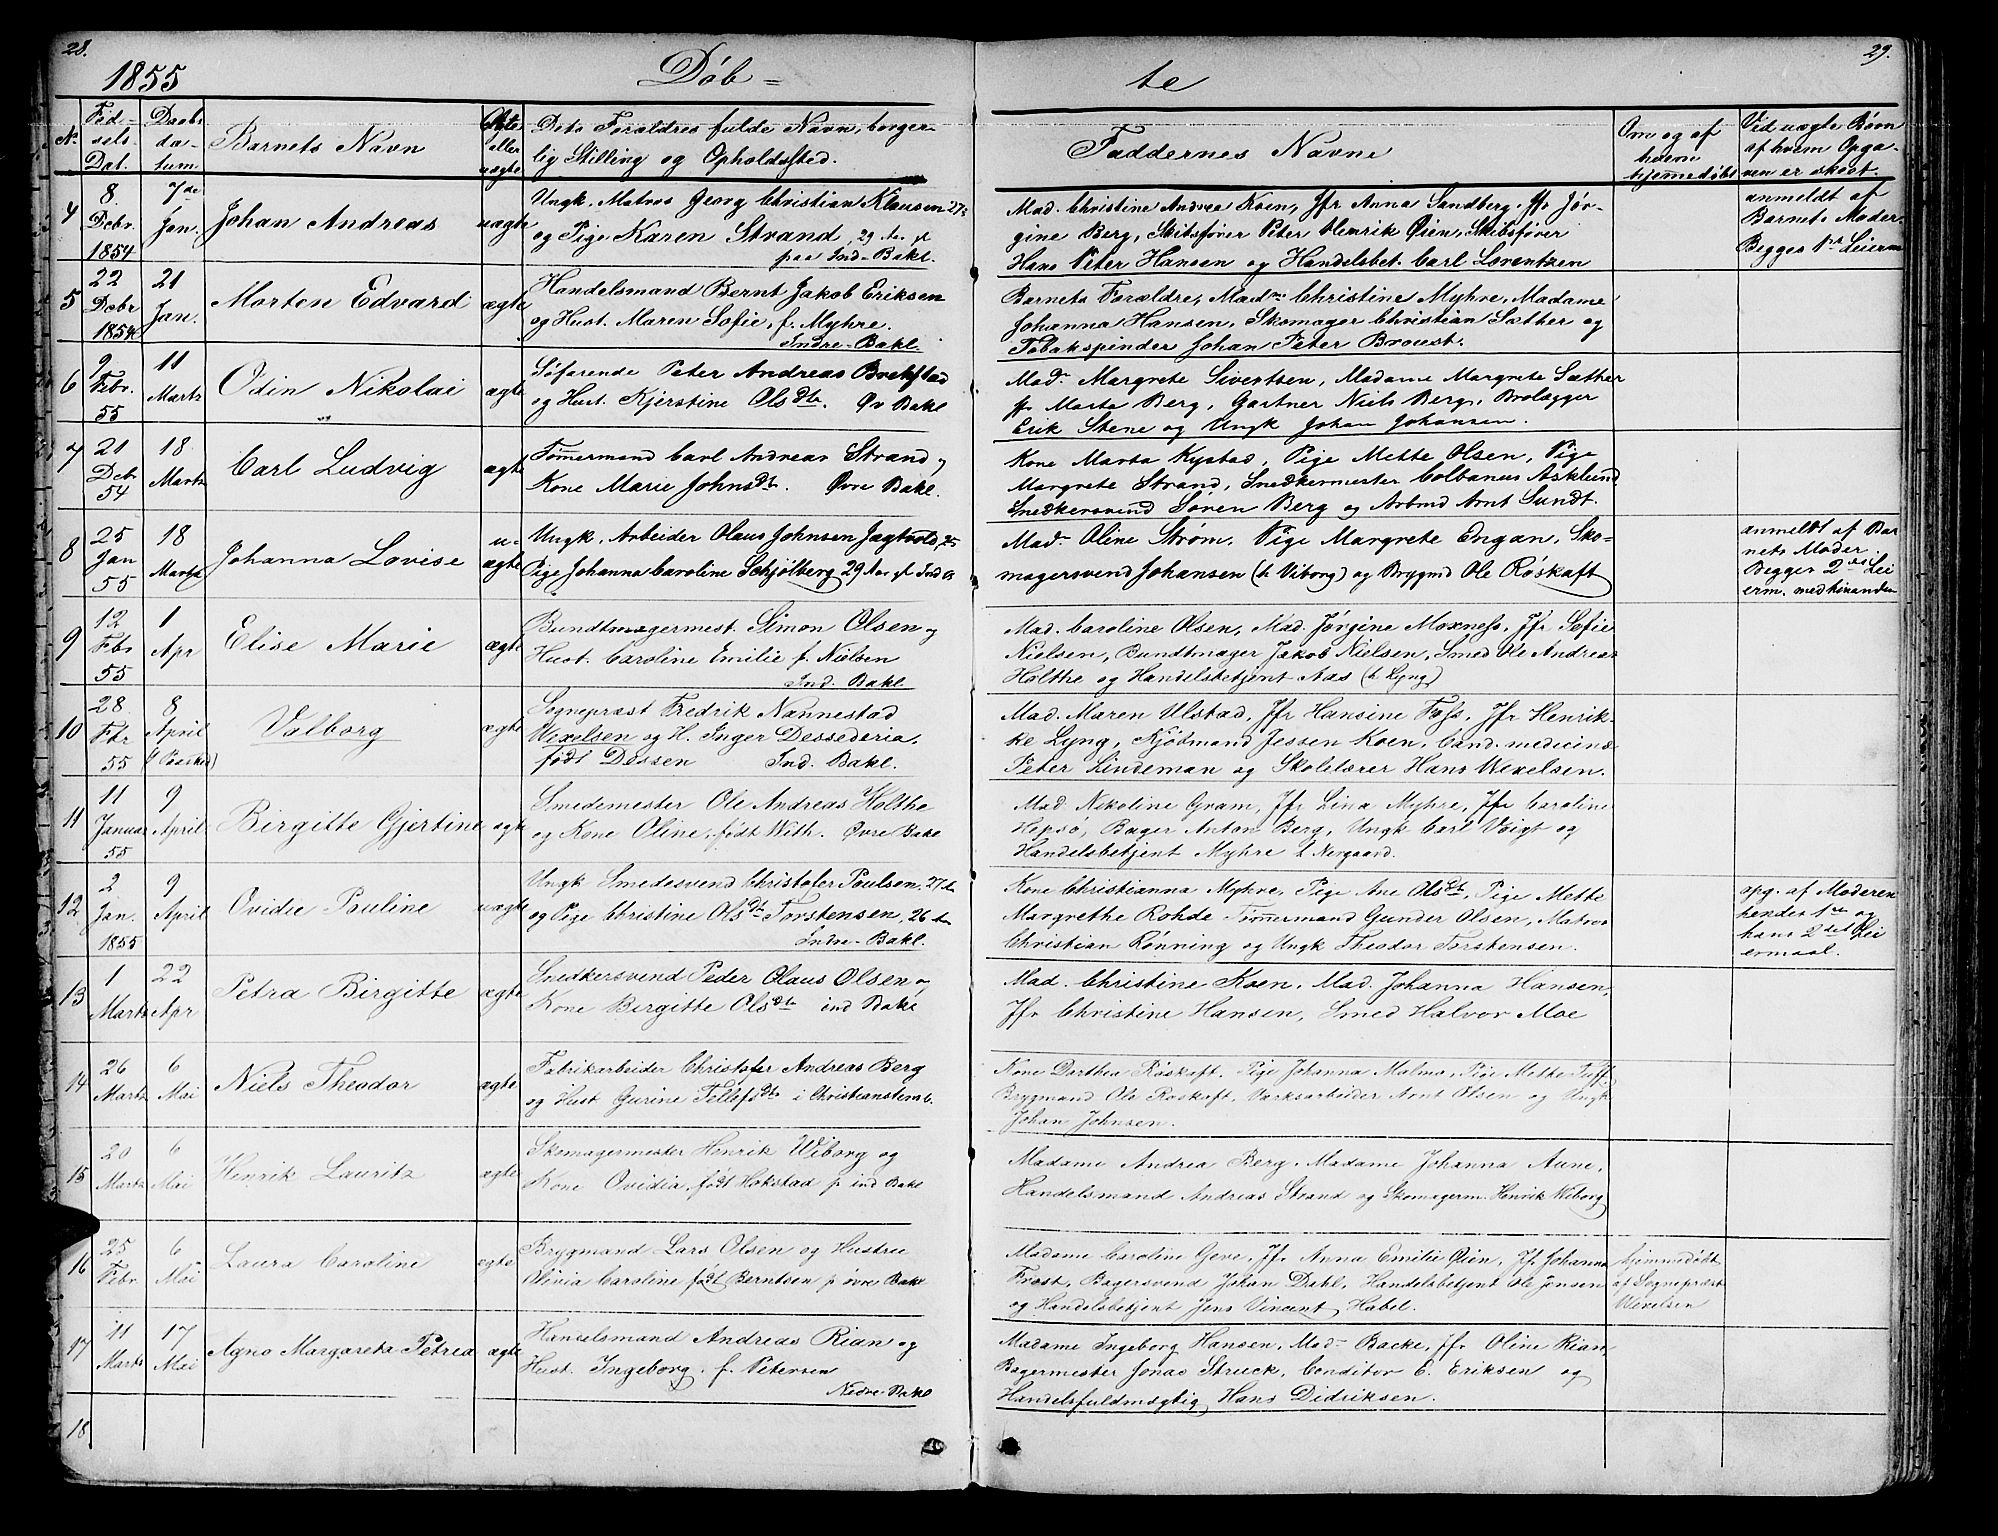 28.
29.
1855
Döb=
te
No
Föd-
sels
Dat.
Daabs
da-
tum
Barnets Navn
Ægte
eller
uægte
Dets Forældres fulde Navn, borger-
lig Stilling og Opholdssted.
Faddernes Navne
Om og af
hvem
hjemmedöbt
Ved uægte Børn
af hvem Opga-
ven er skeet.
4
8.
Decbr.
1854
7de
Jan.
Johan Andreas
uægte
Ungk. Matros Georg Christian Klausen 27
og Pige Karen Strand, 29 Aar gl
paa Ind-Bakl.
Mad. Christine Andrea Koen, Jfr Anna Sandberg, Jfr Jör-
gine Berg, Skibsförer Peter Henrik Öien, Skibsförer
Hans Peter Hansen og Handelsbet. Carl Lorentzen
anmeldt af
Barnets Moder
Begges 1ste Leierm
5
22
Decbr
1854
21
Jan.
Morten Edvard
ægte
Handelsmand Bernt Jakob Eriksen
og Hust. Maren Sofie, f. Myhre.
Indre-Bakl.
Barnets Forældre, Madme Christine Myhre, Madame
Johanna Hansen, Skomager Christian Sæther og
Tobakspinder Johan Peter Broust.
6
9
Febr.
55
11
Martz
Odin Nikolai
ægte
Söfarende Peter Andreas Brekstad
og Hust. Kjerstine Olsdtr. Öv Bakl
Mad. Margrete Sivertsen, Madame Margrete Sæther
Jfr Marta Berg, Gartner Niels Berg, Brolægger
Erik Stene og Ungk Johan Johansen.
7
21
Debr
54
18
Martz
Carl Ludvig
ægte
Tömmermand Carl Andreas Strand og
Kone Marie Johnsdtr. Övre Bakl.
Kone Marta Kystad, Pige Mette Olsen, Pige
Margrete Strand, Snedkermester Colbanus Asklund
Snedkersvend Sören Berg og Arbmd Arnt Sundt.
8
25
Jan
55
18
Martz
Johanna Lovise
u-
ægte
Ungk. Arbeider Olaus Johnsen Jagtvold, 25
Pige Johanna Caroline Schjölberg 29 Aar gl Ind B
Mad. Oline Ström, Pige Margrete Engan, Sko-
magersvend Johansen (b Viborg) og Brygmd Ole Röskaft
anmeldt af Bar
nets Moder.
Begges 2det Lei
erm. med hinanden
9
12
Fbr
55
1
Apr
Elise Marie
ægte
Bundtmagermest. Simon Olsen og
Hust. Caroline Emilie f. Nielsen
Ind. Bakl.
Mad. Caroline Olsen, Mad. Jörgine Moxness, Jfr Sofie
Nielsen, Bundtmager Jakob Nielsen, Smed Ole Andreas
Holthe og Handelsbetjent Aas (b Lyng)
10
28
Fbr
55
8
April
(1 Paasked)
Valborg
ægte
Sognepræst Fredrik Nannestad
Wexelsen og H. Inger Dessederia,
födt Dössen Ind. Bakl.
Mad. Maren Ulstad, Jfr Hansine Foss, Jfr Henrik-
ke Lyng, Kjöbmand Jessen Koen, Cand. medicinæ
Peter Lindeman og Skolelærer Hans Wexelsen.
11
11
Januar
55
9
April
Birgitte Gjertine
ægte
Smedemester Ole Andreas Holthe
og Kone Oline, födt With. Övre Bakl
Mad. Nikoline Gram, Jfr Lina Myhre, Jfr Caroline
Hepsö, Bager Anton Berg, Ungk Carl Voigt og
Handelsbetjent Myhre b Nergaard.
12
2
Jan.
1855
9
April
Ovidie Pauline
uægte
Ungk Smedesvend Christofer Poulsen, 27
og Pige Christine Olsdtr Torstensen, 26
Indre-Bakl.
Kone Christianna Myhre, Pige Ane Olsdtr, Pige Mette
Margrethe Rohde Tömmermand Gunder Olsen, Matros
Christian Rönning og Ungk Theodor Torstensen.
opg. af Moderen
hendes 1ste og
hans 2det Lei
ermaal.
13
1
Martz
22
Apr
Petra Birgitte
ægte
Snedkersvend Peder Olaus Olsen og
Kone Birgitte Olsdtr ind Bakl
Mad. Christine Koen, Mad. Johanna Hansen,
Jfr Christine Hansen, Smed Halvor Moe
14
26
Martz
6
Mai
Niels Theodor
ægte
Fabrikarbeider Christofer Andreas Berg
og Hust Gurine Tellefsdtr i Christiansten b.
Kone Dorthea Röskaft, Pige Johanna Malmo, Pige Mette Tuff.
Brygmand Ole Röskaft, Værksarbeider Arnt Olsen og Ungk
Johan Johnsen.
15
20
Martz
6
Mai
Henrik Lauritz
ægte
Skomagermester Henrik Wiborg og
Kone Ovidia, födt Hokstad p ind Bakl
Madame Andrea Berg. Madame Johanna Aune,
Handelsmand Andreas Strand og Skomagerm. Henrik Wiborg
16
25
Febr
6
Mai
Laura Caroline
ægte
Brygmand Lars Olsen og Hustru
Olivia Caroline födt Berntsen p övre Bakl
Madame Caroline Geve, Jfr Anna Emilie Öien, Jfr Johanna
Frost, Bagersvend Johan Dahl, Handelsbetjent Ole Jensen
og Handelsbetjent Jens Vincent Habel.
hjemmedöbt
af Sognepræst
Wexelsen
17
11
Marts
17
Mai
Agna Margareta Petrea
ægte
Handelsmand Andreas Rian og
Hust. Ingeborg, f. Petersen
Nedre-Bakl
Madame Ingeborg Hansen, Mad. Backe, Jfr Oline Rian,
Bagermester Jonas Struck, Conditor C. Eriksen og
Handelsfuldmægtig Hans Didriksen.
18